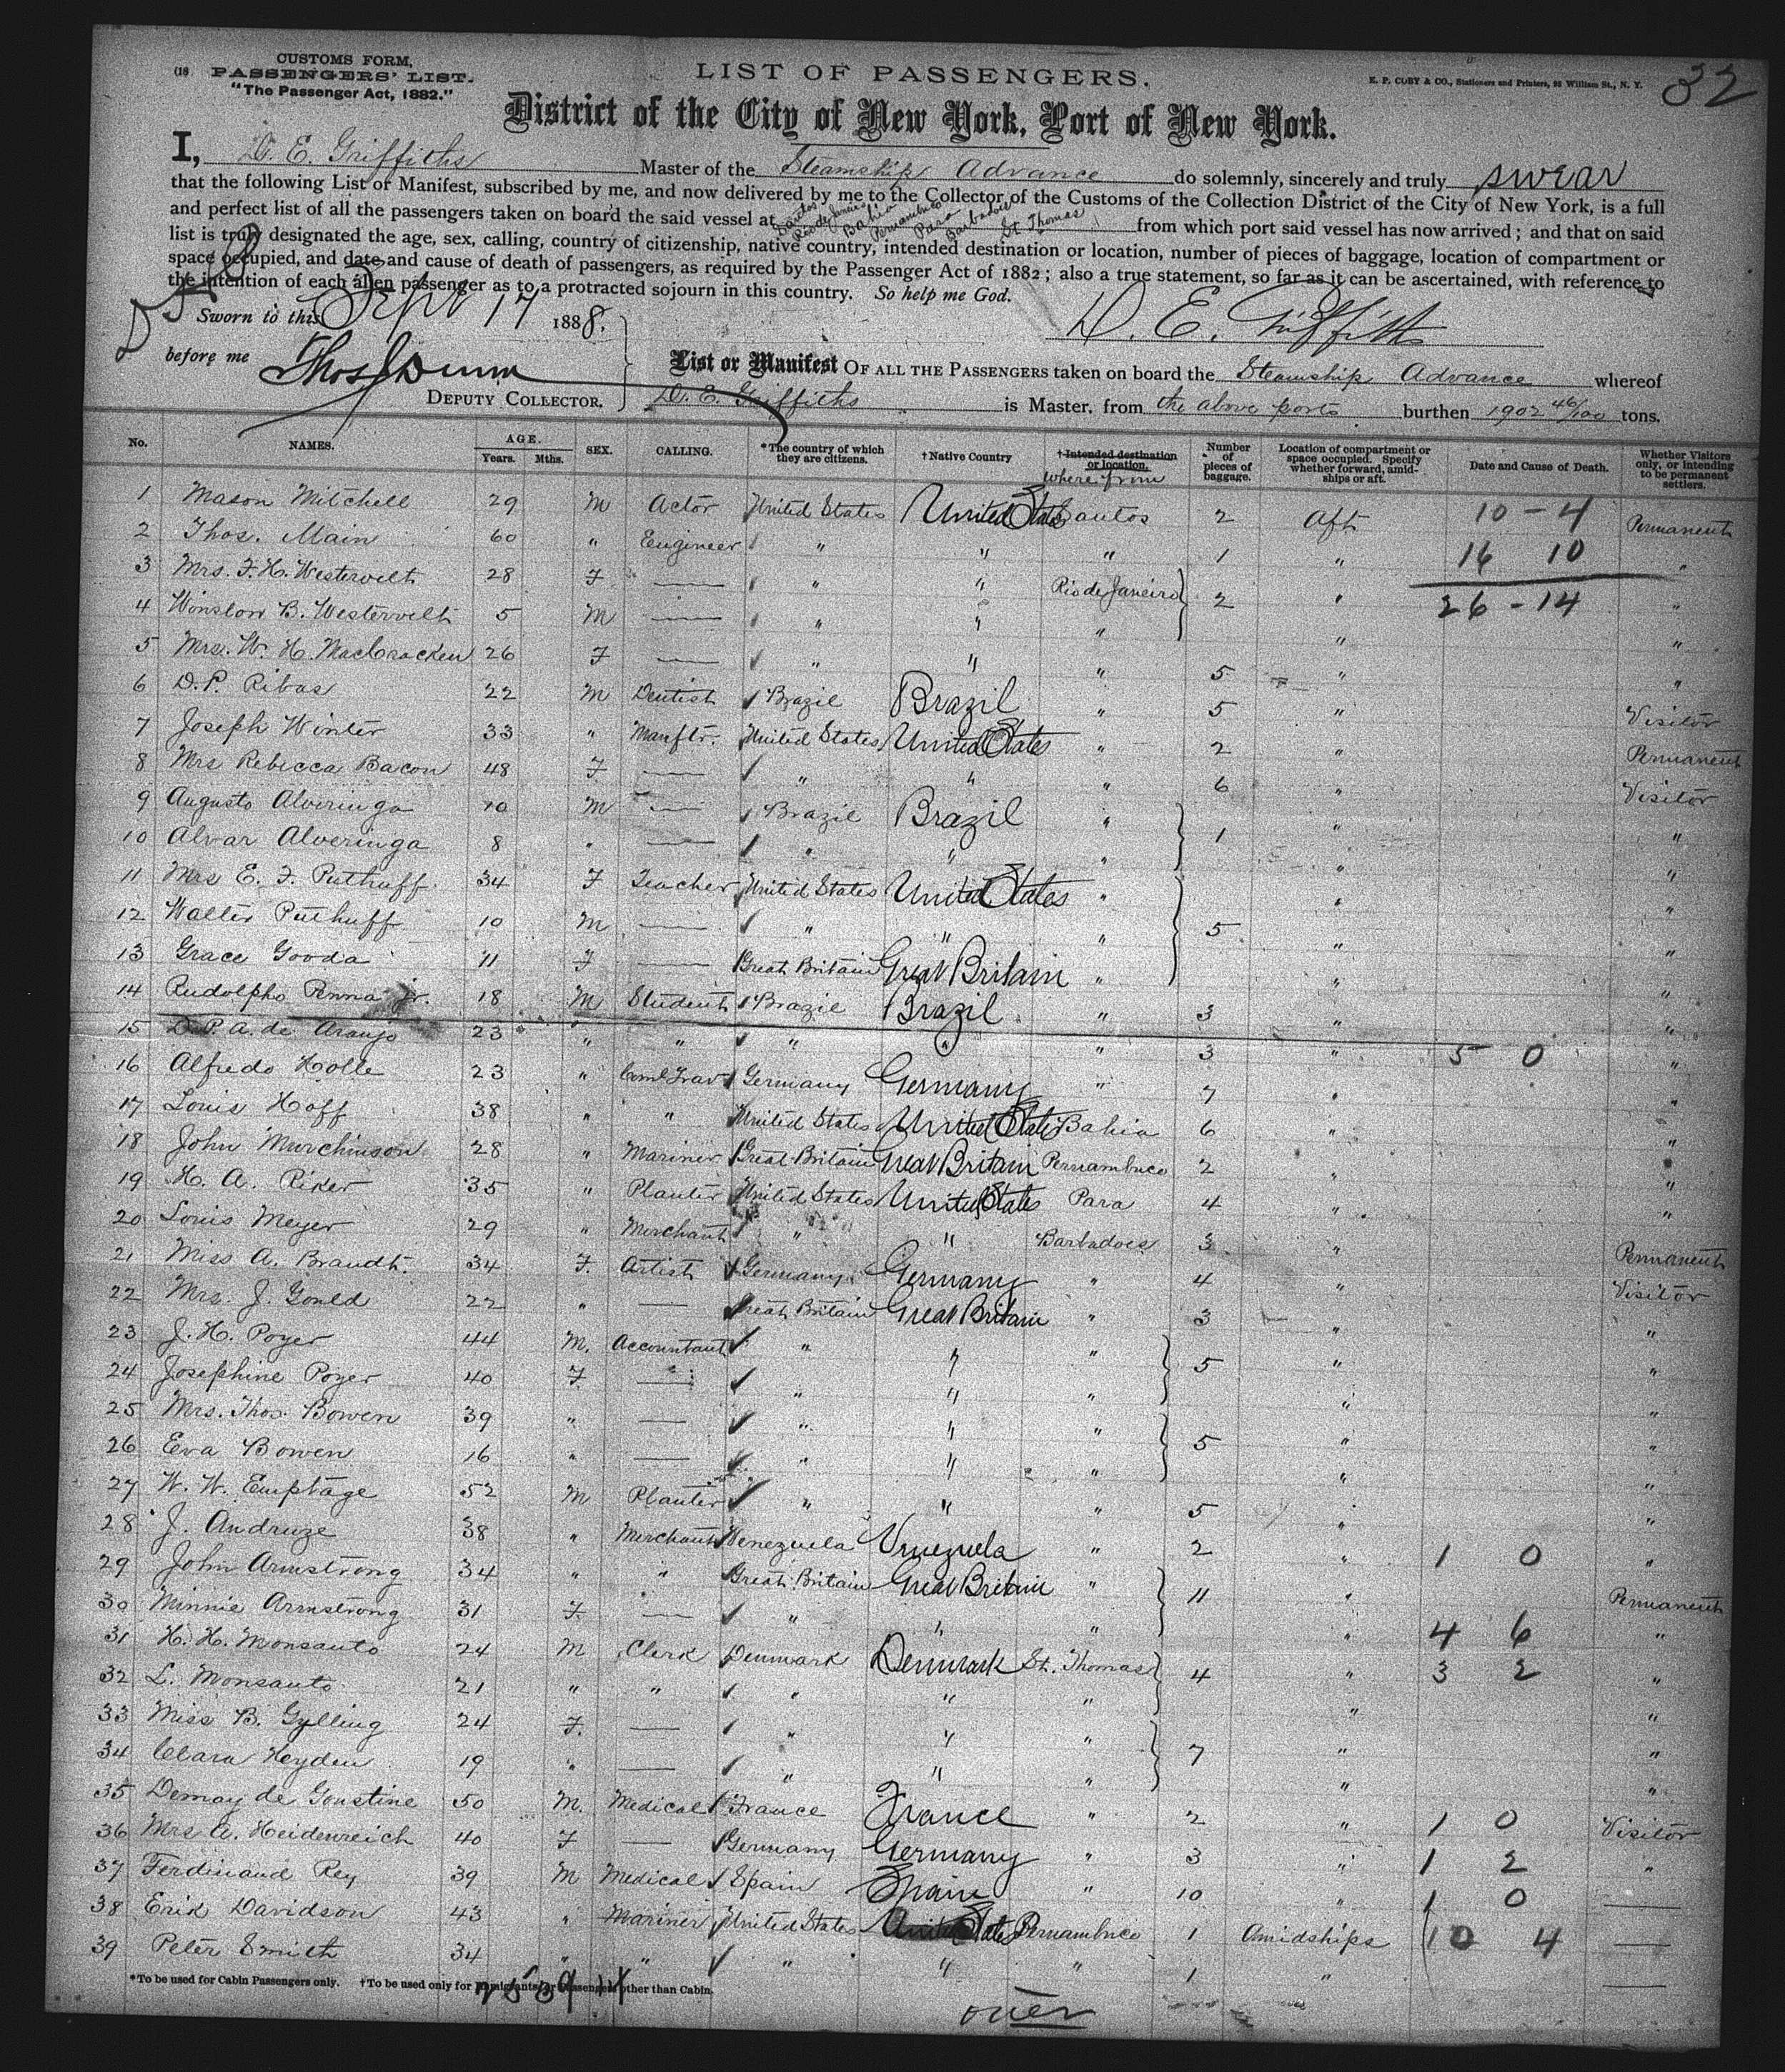 (18 CUSTOMS FORM,
PASSENGERS' LIST.
"The Passenger Act, 1882."
LIST OF PASSENGERS.
E. P. COBY & CO., Stationers and Printers, 95 William St., N. Y.
32
District of the City of New York, Port of New York.
I, D. E. Griffiths Master of the Steamship Advance do solemnly, sincerely and truly swear
that the following List or Manifest, subscribed by me, and now delivered by me to the Collector of the Customs of the Collection District of the City of New York, is a full
and perfect list of all the passengers taken on board the said vessel at Santos Rio de Janeiro Bahia Pernambuco Para Barbadoes St. Thomas from which port said vessel has now arrived; and that on said
list is truly designated the age, sex, calling, country of citizenship, native country, intended destination or location, number of pieces of baggage, location of compartment or
space occupied, and date and cause of death of passengers, as required by the Passenger Act of 1882; also a true statement, so far as it can be ascertained, with reference to
the intention of each alien passenger as to a protracted sojourn in this country. So help me God.
Sworn to this Sept 17 1888.
D. E. Griffiths
before me Thos J Dunn
DEPUTY COLLECTOR.
List or Manifest OF ALL THE PASSENGERS taken on board the Steamship Advance whereof
D. E. Griffiths is Master, from the above ports burthen 1902 46/100 tons.
No. NAMES. AGE. Years. Mths. SEX. CALLING. *The country of which they are citizens. †Native Country †Intended destination or location. where from Number of pieces of baggage. Location of compartment or space occupied. Specify whether forward, amidships or aft. Date and Cause of Death. Whether Visitors only, or intending to be permanent settlers.
1 Mason Mitchell 29 M Actor United States United States Santos 2 Aft 10 - 4 Permanent
2 Thos. Main 60 " Engineer " " " 1 " 16 10 "
3 Mrs. F. H. Westervelt 28 F — " " Rio de Janeiro 2 " 26 - 14 "
4 Winslow B. Westervelt 5 M — " " " " "
5 Mrs. W. H. MacCracken 26 F — " " " 5 " "
6 D. P. Ribas 22 M Dentist Brazil Brazil " 5 " Visitor
7 Joseph Winter 33 " Manftr. United States United States " 2 " Permanent
8 Mrs Rebecca Bacon 48 F — " " " 6 " Visitor
9 Augusto Alveringa 10 M — Brazil Brazil " 1 " "
10 Alvar Alveringa 8 " — " " " " "
11 Mrs E. F. Puthuff 34 F Teacher United States United States " 5 " "
12 Walter Puthuff 10 M — " " " " "
13 Grace Gooda 11 F — Great Britain Great Britain " " "
14 Rudolpho Penna Jr. 18 M Student Brazil Brazil " 3 " "
15 D. P. A. de Araujo 23 " " " " " 3 " 5 0 "
16 Alfredo Holle 23 " Coml Trav Germany Germany " 7 " "
17 Louis Hoff 38 " " United States United States Bahia 6 " "
18 John Murchinson 28 " Mariner Great Britain Great Britain Pernambuco 2 " "
19 H. A. Riker 35 " Planter United States United States Para 4 " "
20 Louis Meyer 29 " Merchant " " Barbadoes 3 " Permanent
21 Miss A. Brandt. 34 F. Artist Germany Germany " 4 " Visitor
22 Mrs. J. Gould 22 " — Great Britain Great Britain " 3 " "
23 J. H. Poyer 44 M. Accountant " " " 5 " "
24 Josephine Poyer 40 F. — " " " " "
25 Mrs. Thos. Bowen 39 " — " " " 5 " "
26 Eva Bowen 16 " — " " " " "
27 W. W. Emptage 52 M Planter " " " 5 " "
28 J. Andruze 38 " Merchant Venezuela Venezuela " 2 " 1 0 "
29 John Armstrong 34 " " Great Britain Great Britain " 11 " Permanent
30 Minnie Armstrong 31 F. — " " " " 4 6 "
31 H. H. Monsanto 24 M Clerk Denmark Denmark St. Thomas 4 " 3 2 "
32 L. Monsanto 21 " " " " " " "
33 Miss B. Gylling 24 F. — " " " 7 " "
34 Clara Heyden 19 " — " " " " "
35 Demay de Goustine 50 M. Medical France France " 2 " 1 0 Visitor
36 Mrs A. Heidenreich 40 F — Germany Germany " 3 " 1 2 "
37 Ferdinand Rey 39 M Medical Spain Spain " 10 " 1 0 —
38 Enid Davidson 43 " Mariner United States United States Pernambuco 1 Amidships 10 4 —
39 Peter Smith 34 " " " " " 1 " —
*To be used for Cabin Passengers only. †To be used only for Immigrants or Passengers other than Cabin.
over